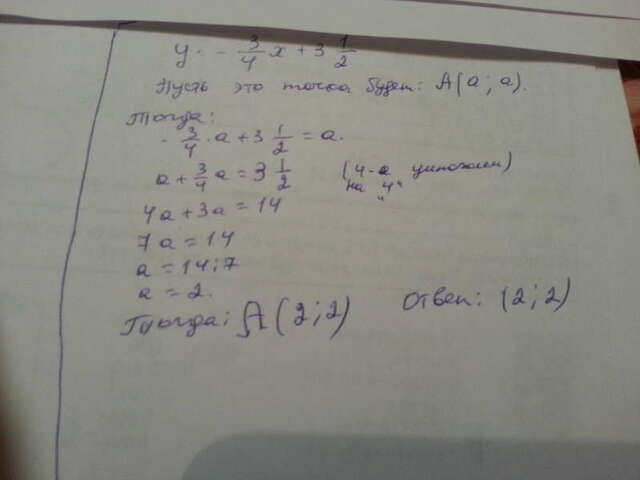 y = - 3/4 x + 3 1/2
Пусть это точка будет: A(a; a).
Тогда:
- 3/4 · a + 3 1/2 = a.
a + 3/4 a = 3 1/2 (4-а умножаем)
на "4"
4a + 3a = 14
7a = 14
a = 14:7
a = 2.
Тогда: A(2; 2) Ответ: (2; 2)